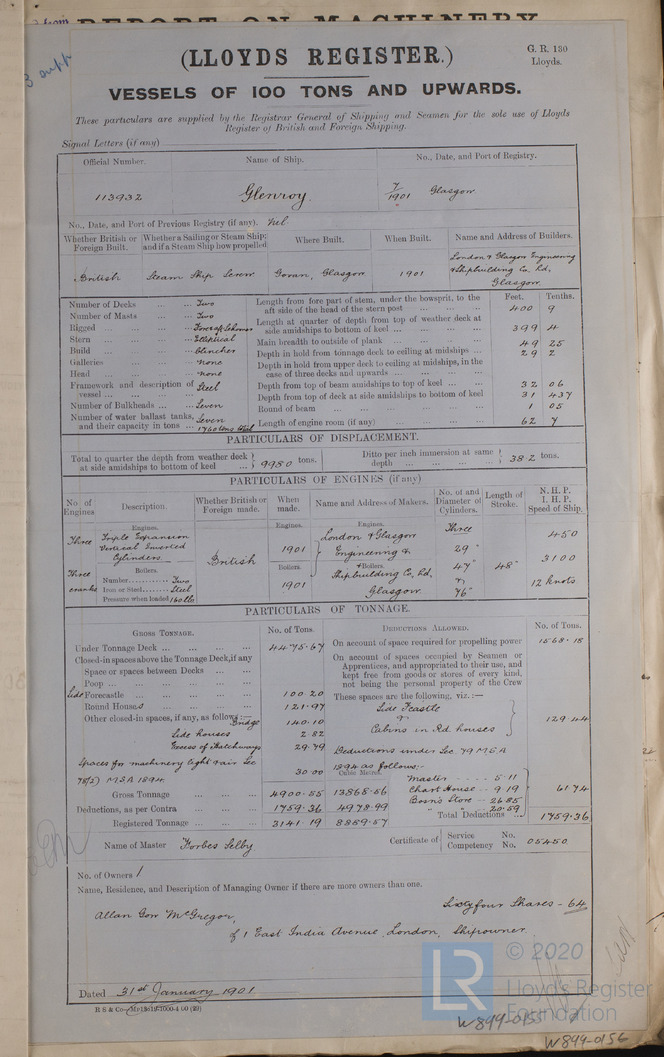 REPORT ON MACHINERY
(LLOYDS REGISTER.)
G. R. 130
Lloyds.
VESSELS OF 100 TONS AND UPWARDS.
These particulars are supplied by the Registrar General of Shipping and Seamen for the sole use of Lloyds
Register of British and Foreign Shipping.
Signal Letters (if any)
Official Number. Name of Ship. No., Date, and Port of Registry.
113932 Glenroy. 7/1901 Glasgow
No., Date, and Port of Previous Registry (if any). Nil
Whether British or Foreign Built. Whether a Sailing or Steam Ship: and if a Steam Ship how propelled Where Built. When Built. Name and Address of Builders.
British Steam Ship Screw Govan, Glasgow 1901 London & Glasgow Engineering & Shipbuilding Co. Ld, Glasgow
Number of Decks ... ... Two
Number of Masts ... ... Two
Rigged ... ... Fore & aft Schooner
Stern ... ... Elliptical
Build ... ... Clincher
Galleries ... ... none
Head ... ... none
Framework and description of vessel ... ... Steel
Number of Bulkheads ... ... Seven
Number of water ballast tanks, and their capacity in tons ... Seven 1760 tons
Feet. Tenths.
Length from fore part of stem, under the bowsprit, to the aft side of the head of the stern post ... 400 9
Length at quarter of depth from top of weather deck at side amidships to bottom of keel ... 399 4
Main breadth to outside of plank ... 49 25
Depth in hold from tonnage deck to ceiling at midships ... 29 2
Depth in hold from upper deck to ceiling at midships, in the case of three decks and upwards ...
Depth from top of beam amidships to top of keel ... 32 06
Depth from top of deck at side amidships to bottom of keel 31 437
Round of beam ... 1 05
Length of engine room (if any) ... 62 7
PARTICULARS OF DISPLACEMENT.
Total to quarter the depth from weather deck at side amidships to bottom of keel ... 9950 tons. Ditto per inch immersion at same depth ... 38.2 tons.
PARTICULARS OF ENGINES (if any)
No. of Engines Description. Whether British or Foreign made. When made. Name and Address of Makers. No. of and Diameter of Cylinders. Length of Stroke. N. H. P. I. H. P. Speed of Ship.
Three Engines. Triple Expansion Vertical Inverted Cylinders British Engines. 1901 Engines. London & Glasgow Engineering & Three 29" 450
Three cranks Boilers. Boilers. 1901 & Boilers. Shipbuilding Co, Ld, Glasgow 47" & 76" 48" 3100
Number............ Two
Iron or Steel........ Steel
Pressure when loaded 160 lbs 12 knots
PARTICULARS OF TONNAGE.
GROSS TONNAGE. No. of Tons. DEDUCTIONS ALLOWED. No. of Tons.
Under Tonnage Deck ... 4475.67 On account of space required for propelling power 1568.18
Closed-in spaces above the Tonnage Deck, if any
Space or spaces between Decks ...
Poop ...
Side Forecastle ... 100.20
Round Houses ... 121.97
Other closed-in spaces, if any, as follows:— Bridge 140.10
Side houses 2.82
Excess of Hatchways 29.79
Spaces for machinery light & air Sec 78(2) M.S.A 1894 30.00
On account of spaces occupied by Seamen or Apprentices, and appropriated to their use, and kept free from goods or stores of every kind, not being the personal property of the Crew
These spaces are the following, viz.:—
Side Fcastle & Cabins in Rd. houses 129.44
Deductions under Sec 79 M.S.A 1894 as follows:-
Master - - - - 5.11
Chart House - - 9.19
Bosn's Store - 26.85
" - 20.59
61.74
Cubic Metres.
Gross Tonnage ... 4900.55 13868.56
Deductions, as per Contra ... 1759.36 4978.99 Total Deductions ... 1759.36
Registered Tonnage ... 3141.19 8889.57
Name of Master Forbes Selby Certificate of Service No. Competency No. 05450
No. of Owners 1
Name, Residence, and Description of Managing Owner if there are more owners than one.
Sixty four Shares - 64
Allan Gow McGregor,
of 1 East India Avenue, London, Shipowner.
Dated 31st January 1901.
© 2020
LR
Lloyd's Register
Foundation
W899-0155
W899-0156